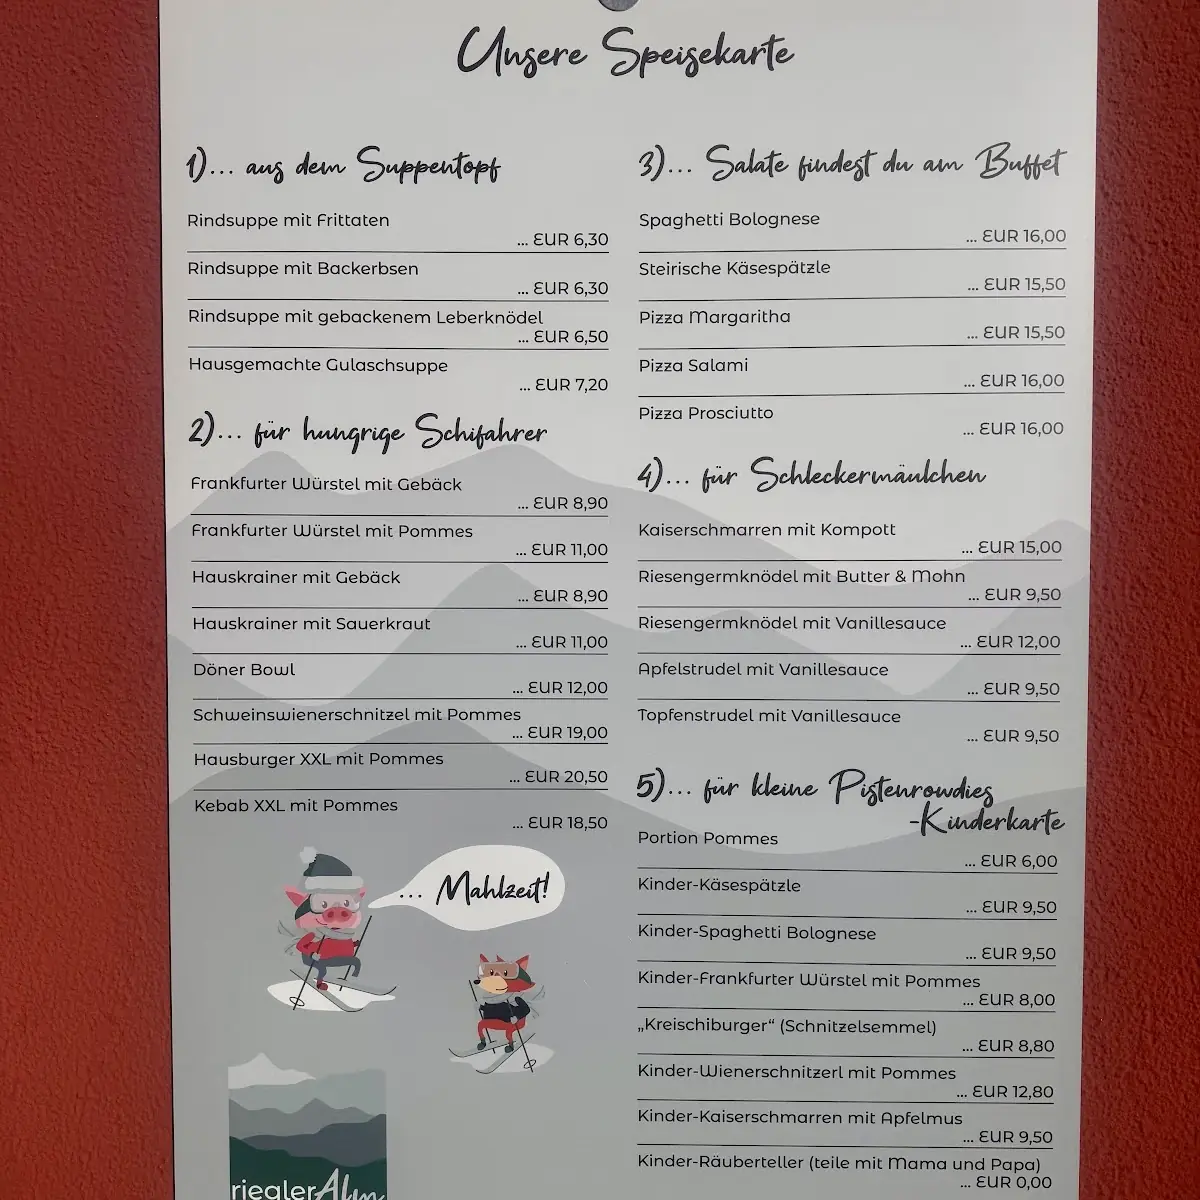 Unsere Speisekarte
1)... aus dem Suppentopf
Rindsuppe mit Frittaten
... EUR 6,30
Rindsuppe mit Backerbsen
... EUR 6,30
Rindsuppe mit gebackenem Leberknödel
... EUR 6,50
Hausgemachte Gulaschsuppe
... EUR 7,20
2)... für hungrige Schifahrer
Frankfurter Würstel mit Gebäck
... EUR 8,90
Frankfurter Würstel mit Pommes
... EUR 11,00
Hauskrainer mit Gebäck
... EUR 8,90
Hauskrainer mit Sauerkraut
... EUR 11,00
Döner Bowl
... EUR 12,00
Schweinswienerschnitzel mit Pommes
... EUR 19,00
Hausburger XXL mit Pommes
... EUR 20,50
Kebab XXL mit Pommes
... EUR 18,50
... Mahlzeit!
rieglerAlm
3)... Salate findest du am Buffet
Spaghetti Bolognese
... EUR 16,00
Steirische Käsespätzle
... EUR 15,50
Pizza Margaritha
... EUR 15,50
Pizza Salami
... EUR 16,00
Pizza Prosciutto
... EUR 16,00
4)... für Schleckermäulchen
Kaiserschmarren mit Kompott
... EUR 15,00
Riesengermknödel mit Butter & Mohn
... EUR 9,50
Riesengermknödel mit Vanillesauce
... EUR 12,00
Apfelstrudel mit Vanillesauce
... EUR 9,50
Topfenstrudel mit Vanillesauce
... EUR 9,50
5)... für kleine Pistenrowdies
-Kinderkarte
Portion Pommes
... EUR 6,00
Kinder-Käsespätzle
... EUR 9,50
Kinder-Spaghetti Bolognese
... EUR 9,50
Kinder-Frankfurter Würstel mit Pommes
... EUR 8,00
„Kreischiburger“ (Schnitzelsemmel)
... EUR 8,80
Kinder-Wienerschnitzerl mit Pommes
... EUR 12,80
Kinder-Kaiserschmarren mit Apfelmus
... EUR 9,50
Kinder-Räuberteller (teile mit Mama und Papa)
... EUR 0,00